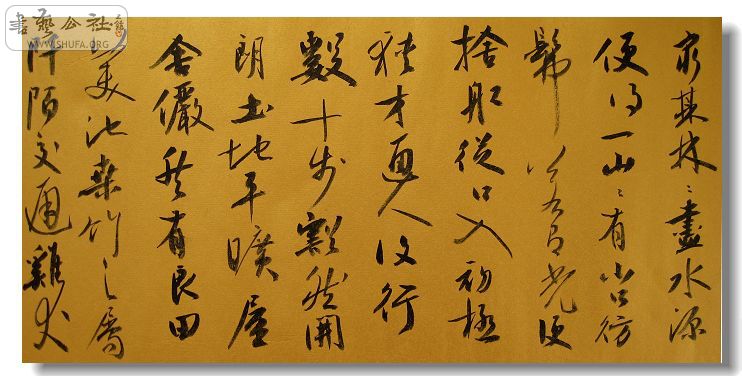 書藝公社
WWW.SHUFA.ORG
窮其林〻盡水源
便得一山〻有小口彷
髴若有光便
捨船從口入初極
狹才通人復行
數十步豁然開
朗土地平曠屋
舍儼然有良田
美池桑竹之屬
阡陌交通雞犬